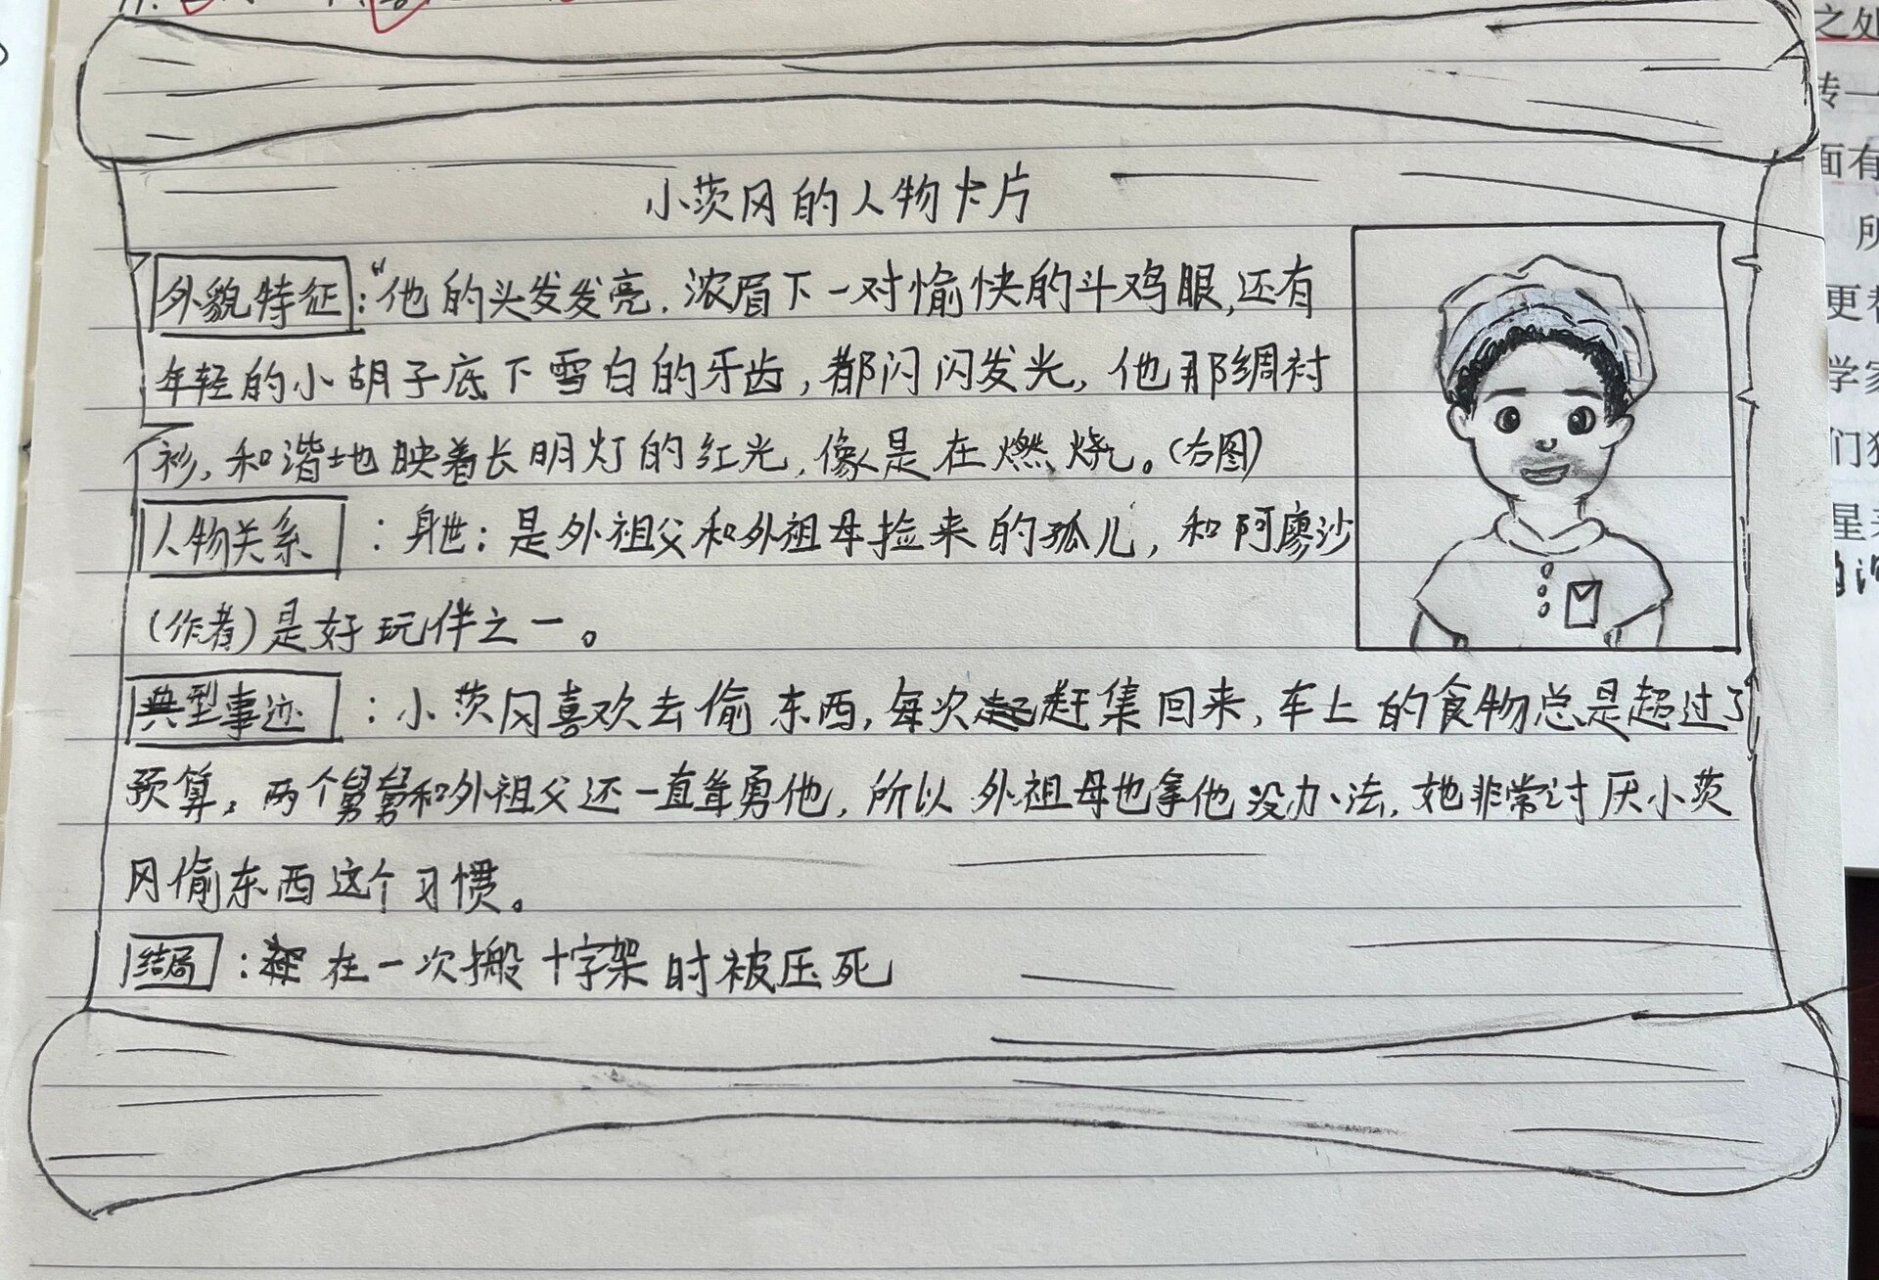 小茨冈的人物卡片
外貌特征:“他的头发发亮,浓眉下一对愉快的斗鸡眼,还有
年轻的小胡子底下雪白的牙齿,都闪闪发光,他那绸衬
衫,和谐地映着长明灯的红光,像是在燃烧。(右图)
人物关系:身世:是外祖父和外祖母捡来的孤儿,和阿廖沙
(作者)是好玩伴之一。
典型事迹:小茨冈喜欢去偷东西,每次赶集回来,车上的食物总是超过了
预算,两个舅舅和外祖父还一直耸勇他,所以外祖母也拿他没办法,她非常讨厌小茨
冈偷东西这个习惯。
结局:在一次搬十字架时被压死
之处
转一
面有
所
更看
学家
们
星